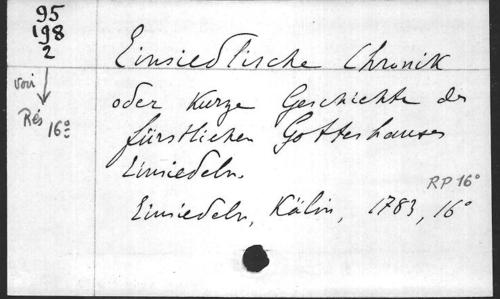 95
198
2
voir
Rés 16°
Einsiedlische Chronik
oder Kurze Geschichte des
fürstlichen Gotteshauses
Einsiedeln.
RP 16°
Einsiedeln, Kälin, 1783, 16°